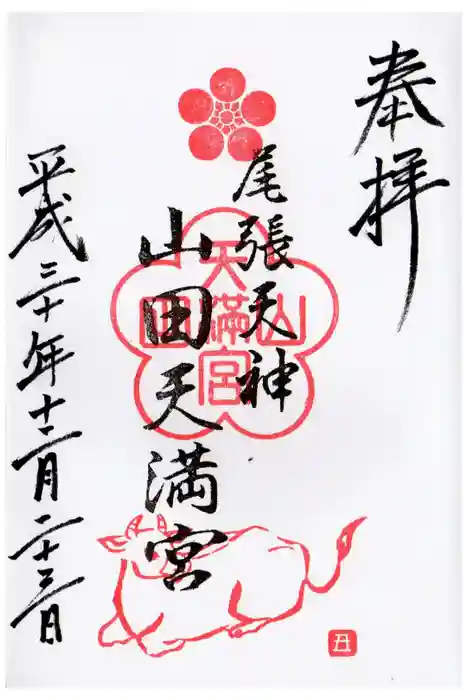 奉拝
尾張天神
山田天満宮
天満宮
山田
平成三十年十二月二十三日
丑